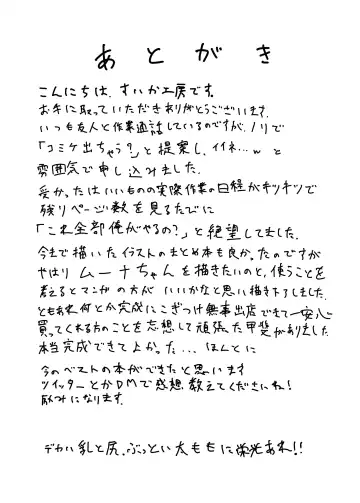 あとがき
こんにちは、すいか工房です。
お手に取っていただきありがとうございます。
いつも友人と作業通話しているのですが、ノリで
「コミケ出ちゃう?」と提案し、イイネ…wと
雰囲気で申し込みました。
受かったはいいものの実際作業の日程がキツキツで
残りページ数を見るたびに
「これ全部俺がやるの?」と絶望してました。
今まで描いたイラストのまとめ本も良かったのですが
やはりムーナちゃんを描きたいのと、使うことを
考えるとマンガの方がいいかなと思い描き下しました。
ともあれ何とか完成にこぎつけ無事出店できて一安心
買ってくれる方のことを妄想して頑張った甲斐がありました
本当完成できてよかった... ほんとに
今のベストの本ができたと思います
ツイッターとかDMで感想教えてくださいね!
励みになります。
デカい乳と尻、ぶっとい太ももに栄光あれ!!